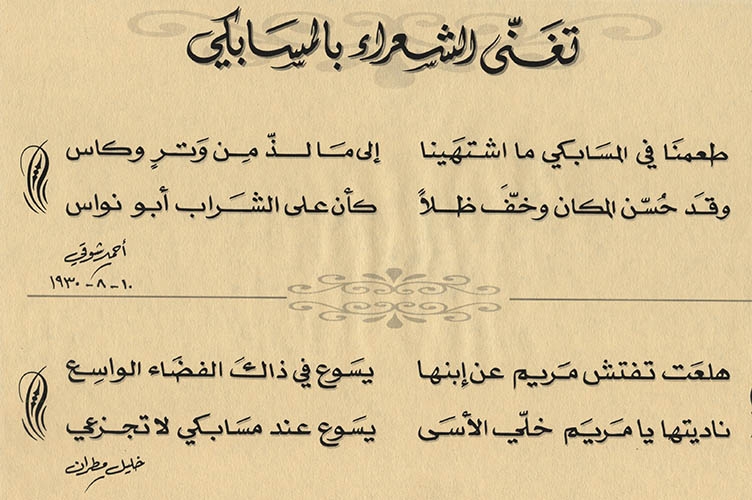 تغنّى الشعراء بالمسابكي
طعمنا في المسَابكي ما اشتهَينا إلى مَا لــذّ مِـن وَتـرٍ وكاس
وقدَ حُسّن المكان وخفّفَ ظلاً كأن على الشرَاب أبو نواس
أحمد شوقي
١٠ - ٨ - ١٩٣٠
هلعَت تفتش مَريم عن إبنها يسَوع في ذاكَ الفضَاء الواسِع
ناديتها يا مَريَم خلّي الأسَى يسَوع عند مسَابكي لا تجزعي
خليل مطران